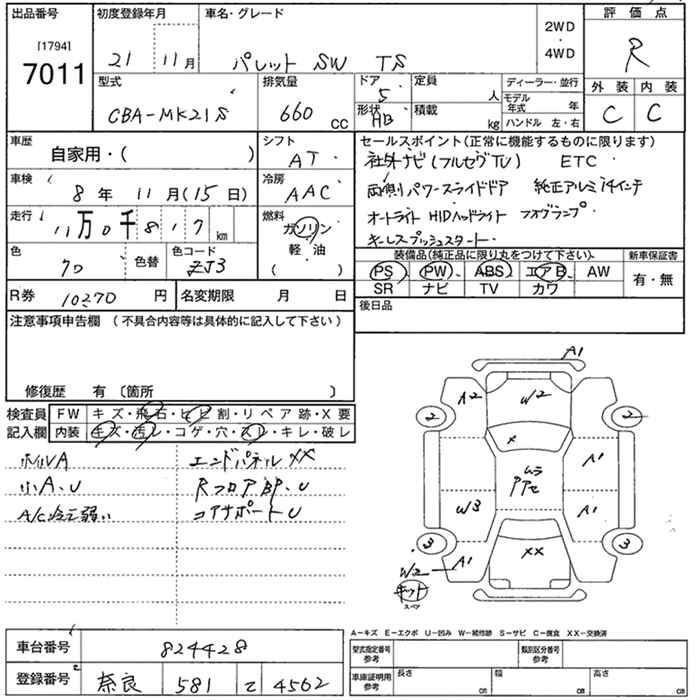 出品番号
[1794]
7011
初度登録年月
21 11月
車名・グレード
パレット SW TS
2WD
・
4WD
評価点
R
型式
CBA-MK21S
排気量
660 CC
ドア
5
形状
HB
定員
人
積載
kg
ディーラー・並行
モデル年式 年
ハンドル 左・右
外装 内装
C C
車歴
自家用・( )
シフト
AT
セールスポイント(正常に機能するものに限ります)
社外ナビ(フルセグTV) ETC
両側パワースライドドア 純正アルミ14インチ
オートライト HIDヘッドライト フォグランプ
キーレスプッシュスタート
車検
8年 11月(15日)
冷房
AAC
走行
11万0千817km
燃料
ガソリン
軽・油
( )
色
色替
色コード
ZJ3
装備品(純正品に限り丸をつけて下さい)
新車保証書
PS PW ABS エアB AW
SR ナビ TV カワ
有・無
R券 10270円
名変期限 月 日
後日品
注意事項申告欄 (不具合内容等は具体的に記入して下さい)
修復歴 有 〔箇所 〕
検査員
記入欄
FW キズ・飛石・ヒビ割・リペア跡・X要
内装 キズ・汚レ・コゲ・穴・スレ・キレ・破レ
小A、U
A/C冷え弱い
エンドパネルXX
RフロアBP、U
コアサポートU
A1
A2
W2
2
2
X
ムラ
A1
W3
A1
3
3
XX
W2
A1
キット
スペア
A-キズ E-エクボ U-凹み W-補修跡 S-サビ C-腐食 XX-交換済
車台番号 824428
登録番号 奈良 581 て 4562
型式指定番号
参考
類別区分番号
参考
車庫証明用
参考
長さ cm
幅 cm
高さ cm